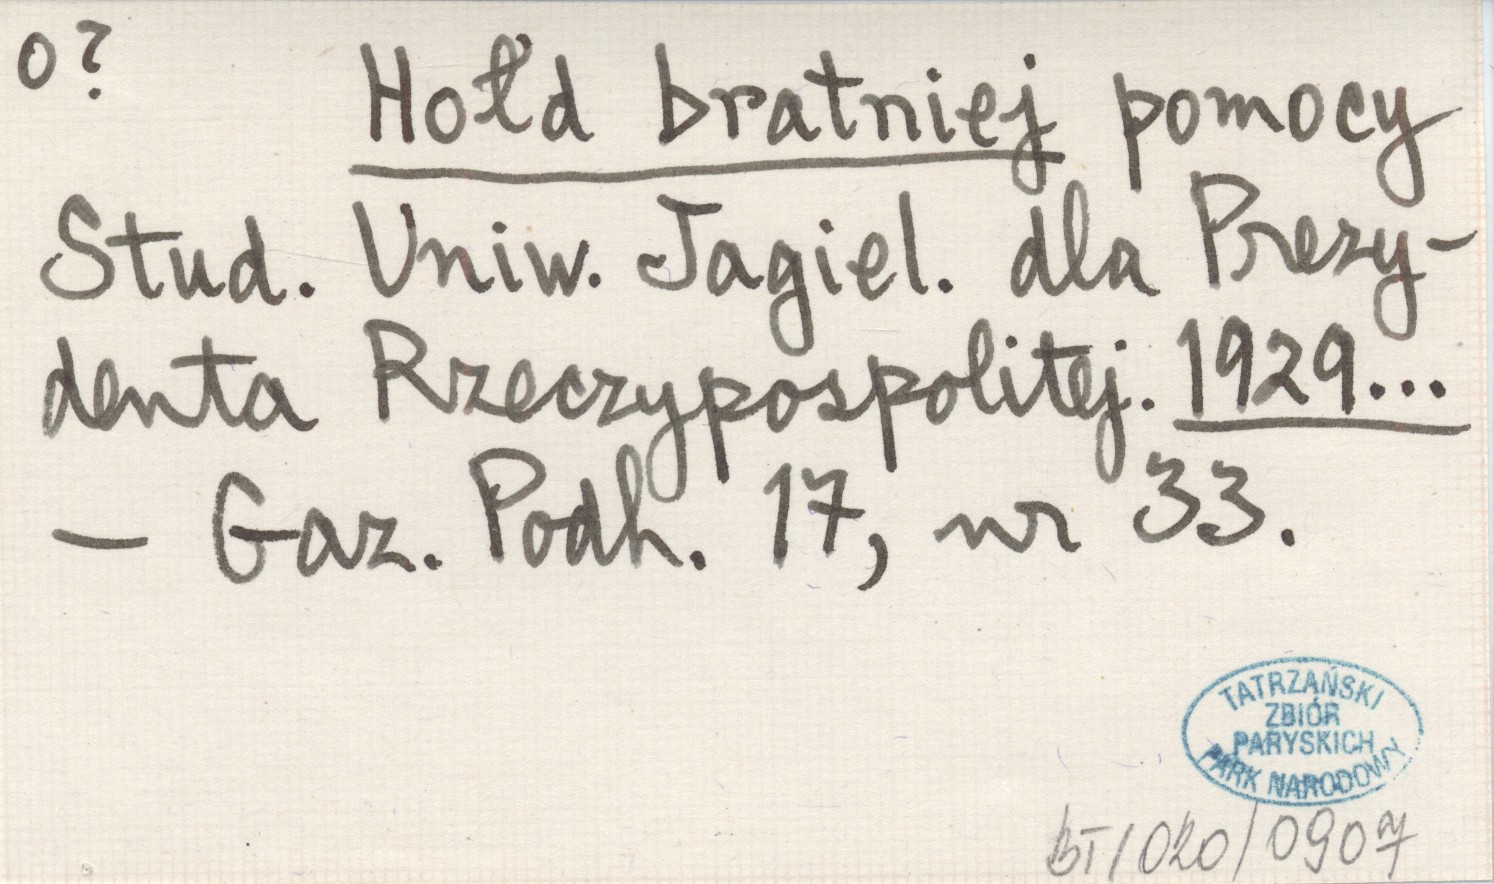 o?
Hołd bratniej pomocy
Stud. Uniw. Jagiel. dla Prezy-
denta Rzeczypospolitej. 1929...
— Gaz. Podh. 17, nr 33.
TATRZAŃSKI
ZBIÓR
PARYSKICH
PARK NARODOWY
BT/020/0907